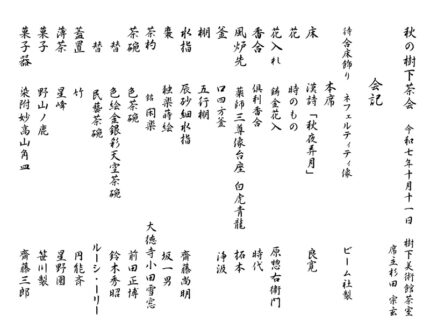 秋の樹下茶会　令和七年十月十一日　樹下美術館茶室
席主杉田　宗玄
会記
待合床飾り　ネフェルティティ像　ビーム社製
本席
床　漢詩「秋夜弄月」　良寛
花　時のもの
花入れ　鋳金花入　原惣右衛門
香合　倶利香合　時代
風炉先　薬師三尊像台座 白虎青龍　拓本
釜　口四方釜　浄波
棚　五行棚
水指　辰砂細水指　齋藤尚明
棗　独楽蒔絵　坂一男
茶杓　銘 閑楽　大徳寺小田雪窓
茶碗　色茶碗　前田正博
替　色絵金銀彩天堂茶碗　鈴木秀昭
替　民藝茶碗　ルーシ・リー
蓋置　竹　円能斎
薄茶　星峰　星野園
菓子　野山ノ鹿　笹川製
菓子器　染附妙高山角皿　齋藤三郎